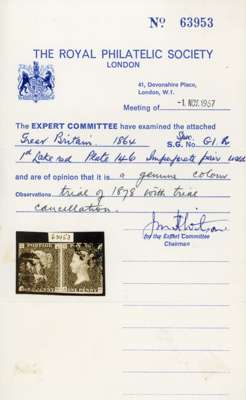 No 63953
THE ROYAL PHILATELIC SOCIETY
LONDON
41, Devonshire Place,
London, W.1.
Meeting of -1 NOV. 1967
The EXPERT COMMITTEE have examined the attached
Great Britain 1864 Spec. S.G. No. G1.
1d Lake red Plate 146 Imperforate pair used
and are of opinion that it is a genuine colour
Observations trial of 1878 with trial
cancellation.
for the Expert Committee
Chairman
63953
POSTAGE
ONE PENNY